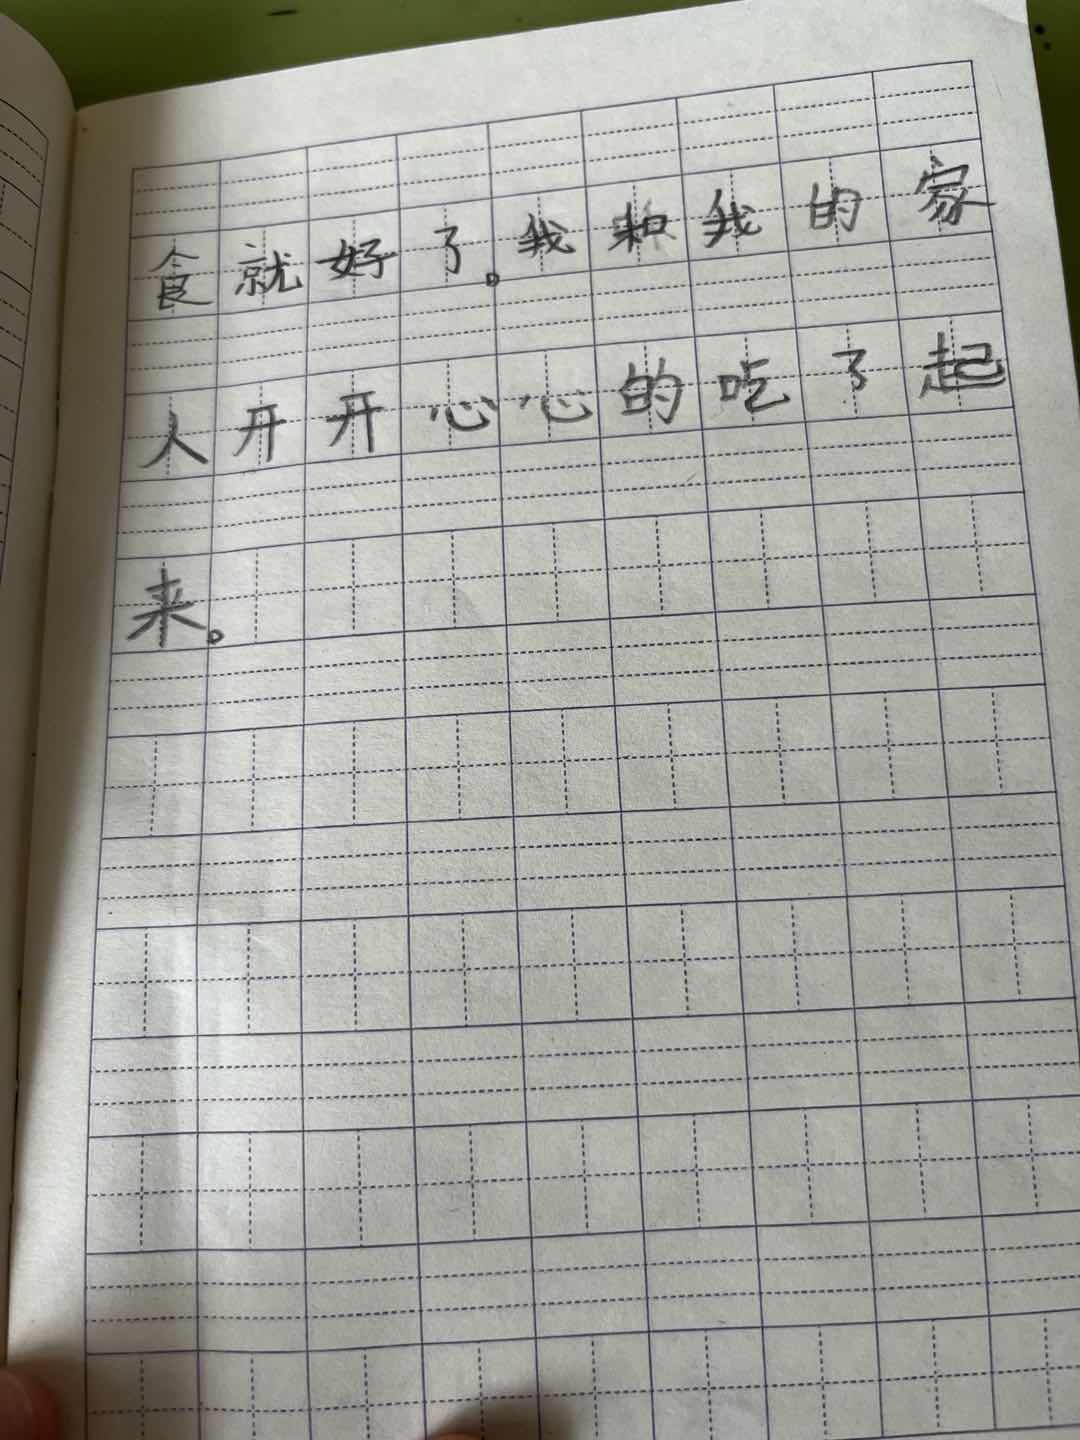 食就好了。我和我的家
人开开心心的吃了起
来。